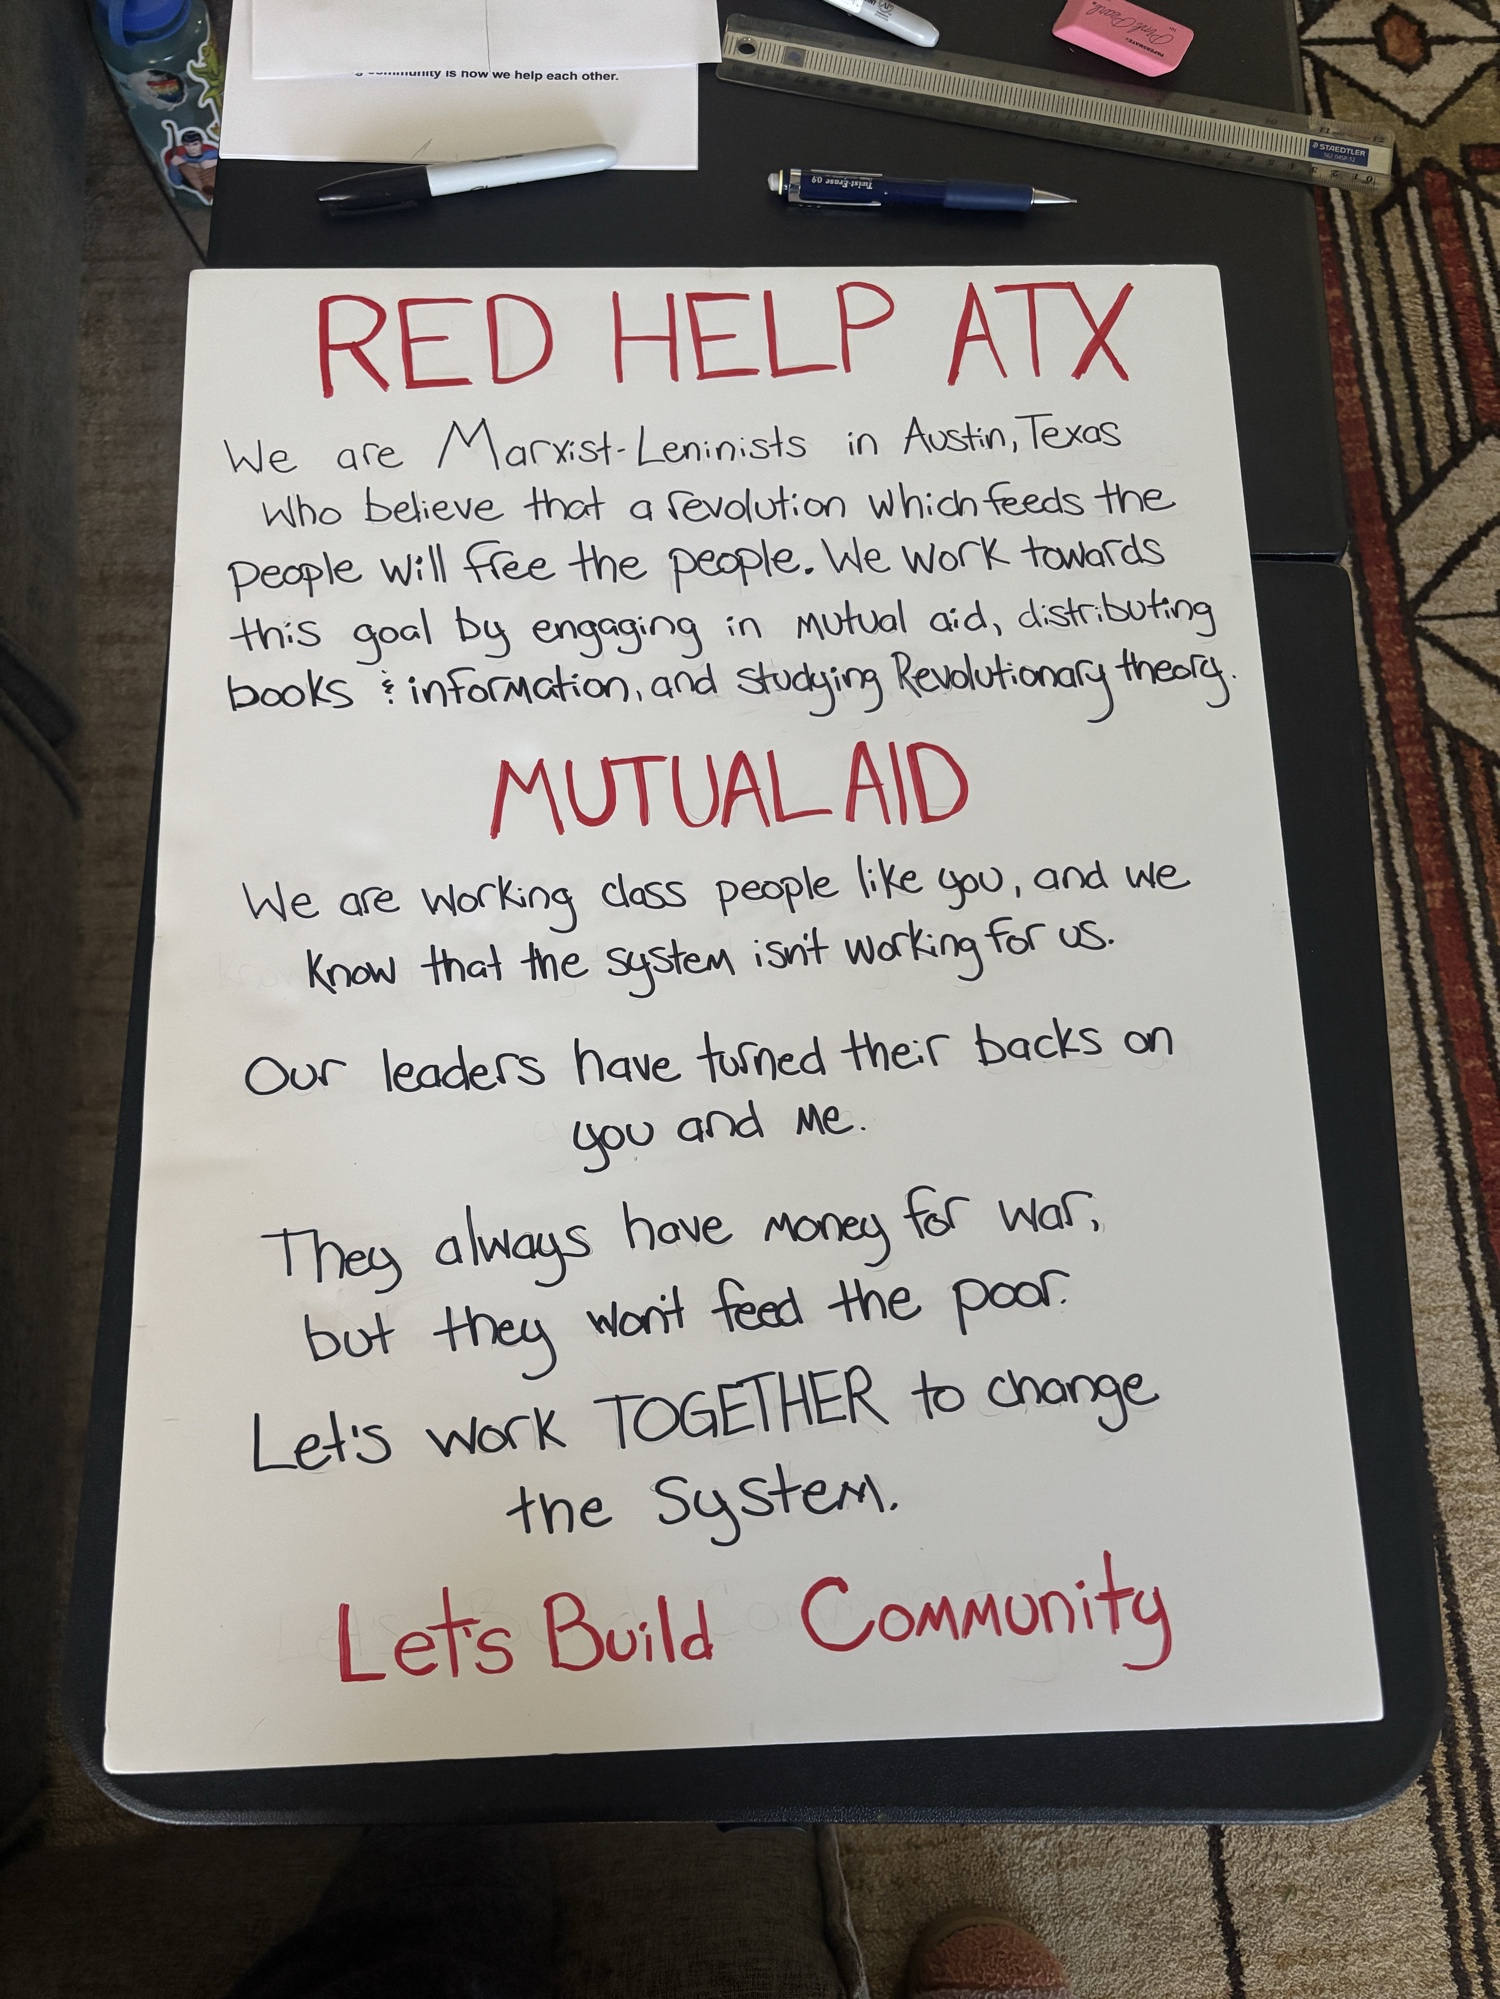 community is how we help each other.
STAEDTLER
Pink Pearl
PAPERMATE
Twist-Erase 09
RED HELP ATX
We are Marxist-Leninists in Austin, Texas
Who believe that a revolution which feeds the
people will free the people. We work towards
this goal by engaging in mutual aid, distributing
books & information, and studying Revolutionary theory.
MUTUAL AID
We are working class people like you, and we
know that the system isn't working for us.
Our leaders have turned their backs on
you and me.
They always have money for war,
but they won't feed the poor.
Let's work TOGETHER to change
the System.
Let's Build Community